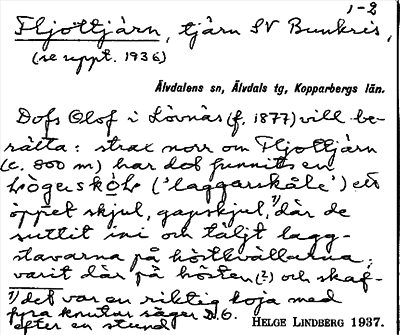 1-2
Fljottjärn, tjärn SV Bunkris,
(se uppt. 1936)
Älvdalens sn, Älvdals tg, Kopparbergs län.
Dofs Olof i Lövnäs (f. 1877) vill be-
rätta: strax norr om Fljottjärn
(c. 800 m) har det funnits en
('laggarskåle') ett
öppet skjul, gapskjul, 1) där de
suttit ini och täljt lagg-
stavarna på höstkvällarna,
varit där på hösten (?) och skaf-
1) det var en riktig koja med
fyra knutar säger D.O.
efter en stund
HELGE LINDBERG 1937.